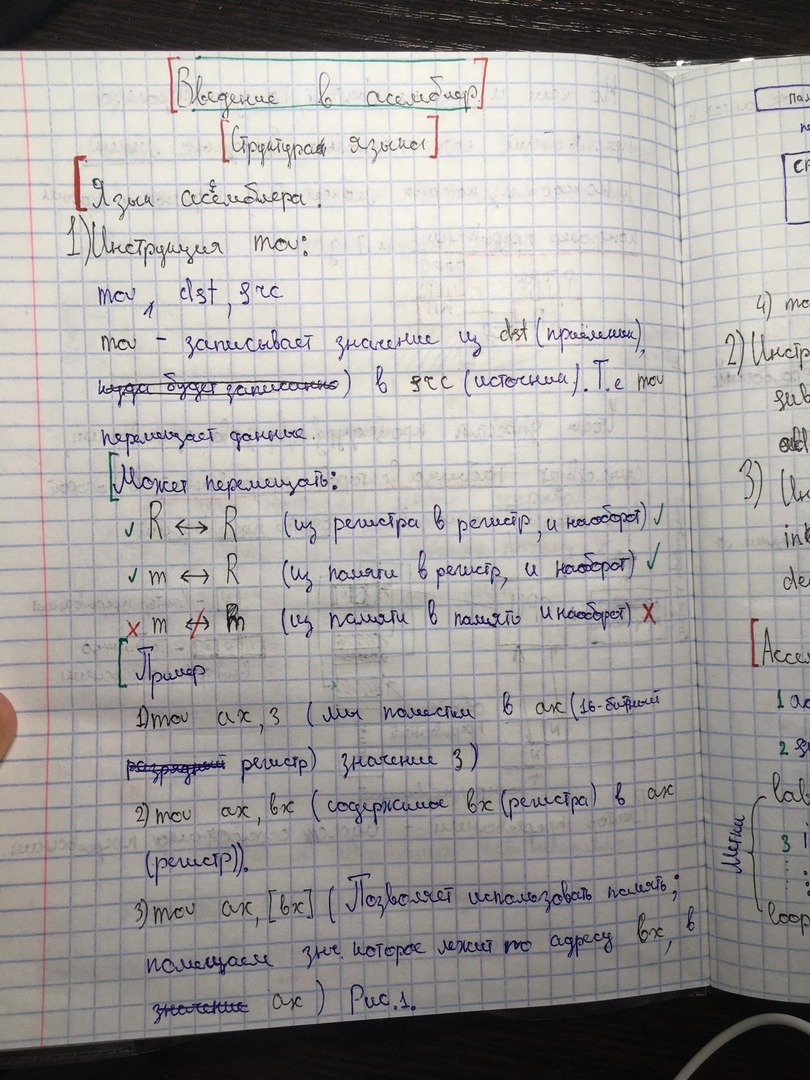 Введение в асемблер
Структура языка
Язык асемблера.
1) Инструкция mov:
mov, dst, src
mov - записывает значение из dst (приёмник),
куда будет записанно) в src (источник). Т.е mov
перемещает данные.
Может перемещать:
✓ R ↔ R (из регистра в регистр, и наоборот) ✓
✓ m ↔ R (из памяти в регистр, и наоборот) ✓
x m ↔ m (из памяти в память и наоборот) x
Пример
1) mov ax, 3 (мы поместим в ax (16-битный
разрядный регистр) значение 3)
2) mov ax, bx (содержимое bx (регистра) в ax
(регистр)).
3) mov ax, [bx] (Позволяет использовать память;
помещаем знч. которое лежит по адресу bx, в
значение ax) Рис.1.
4) mo
2) Инстр
sub
add
3) Ин
in
de
Ассе
1
2
lab
Метки
3
loop